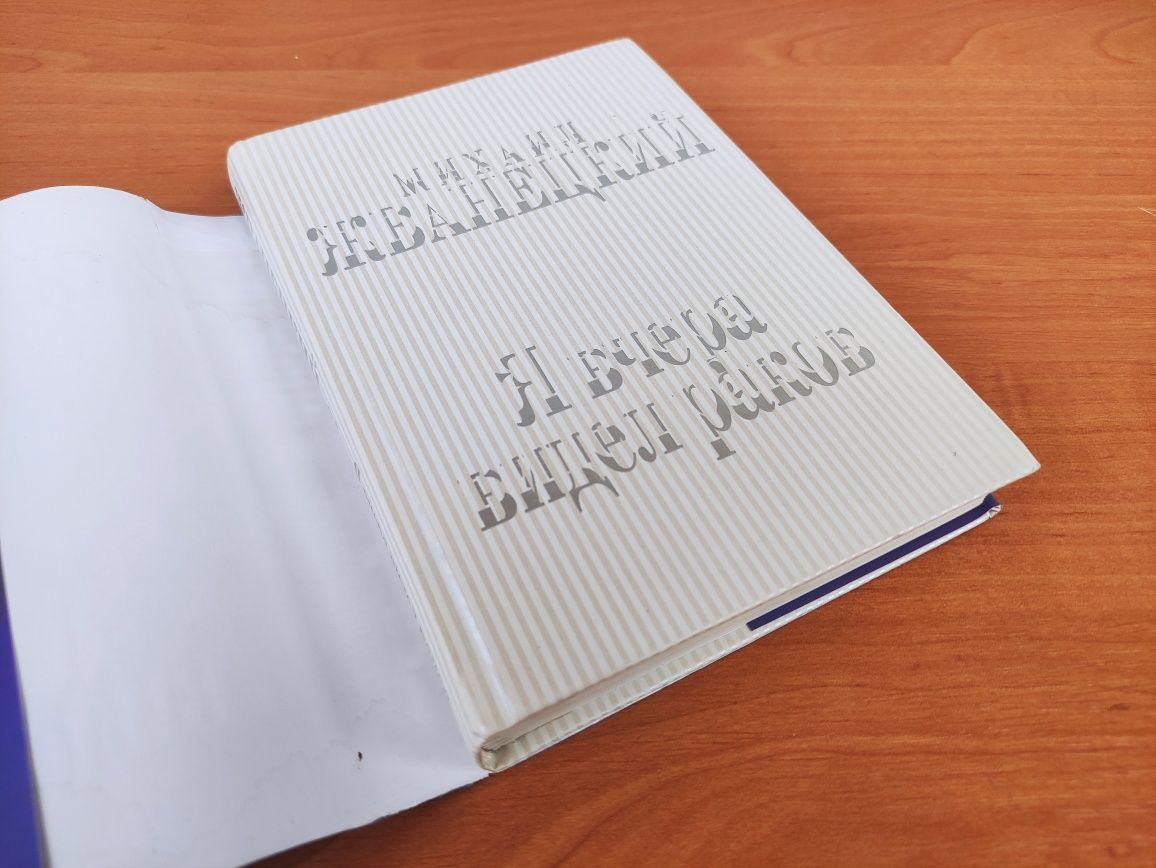 МИХАИЛ
ЖВАНЕЦКИЙ
Я вчера
видел раков